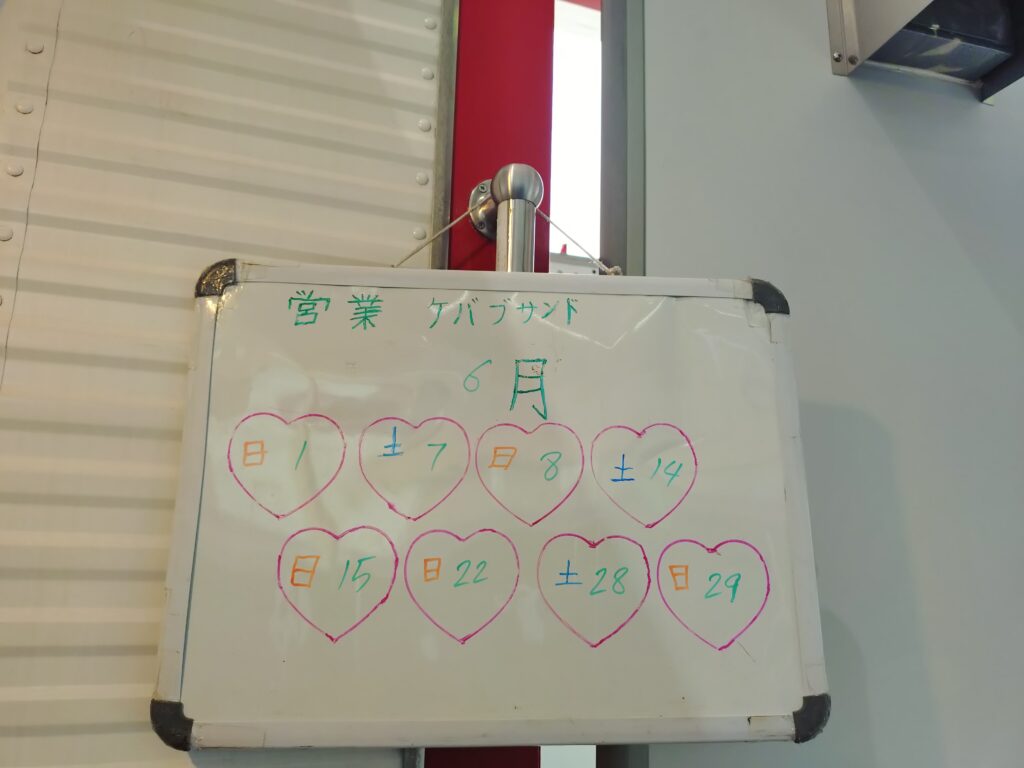 営業 ケバブサンド
6月
日 1 土 7 日 8 土 14
日 15 日 22 土 28 日 29